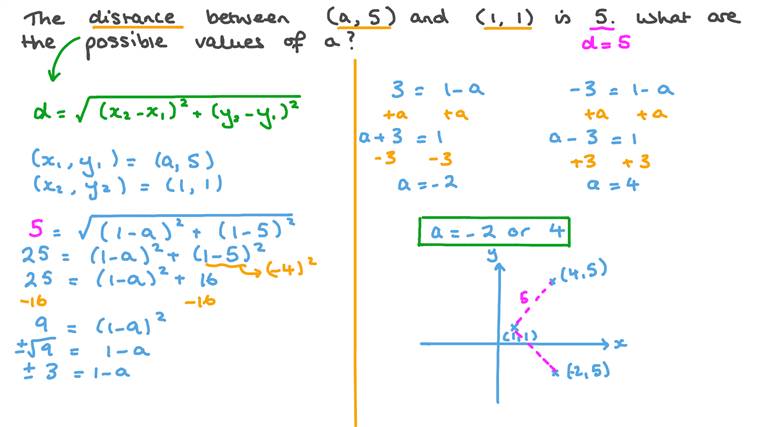 The distance between (a, 5) and (1, 1) is 5. What are
the possible values of a?
d = 5
d = √(x₂-x₁)² + (y₂-y₁)²
(x₁, y₁) = (a, 5)
(x₂, y₂) = (1, 1)
5 = √(1-a)² + (1-5)²
25 = (1-a)² + (1-5)²
→(-4)²
25 = (1-a)² + 16
-16 -16
9 = (1-a)²
±√9 = 1-a
± 3 = 1-a
3 = 1-a
+a +a
a+3 = 1
-3 -3
a = -2
-3 = 1-a
+a +a
a-3 = 1
+3 +3
a = 4
a = -2 or 4
y
(4,5)
5
(1,1)
x
(-2,5)